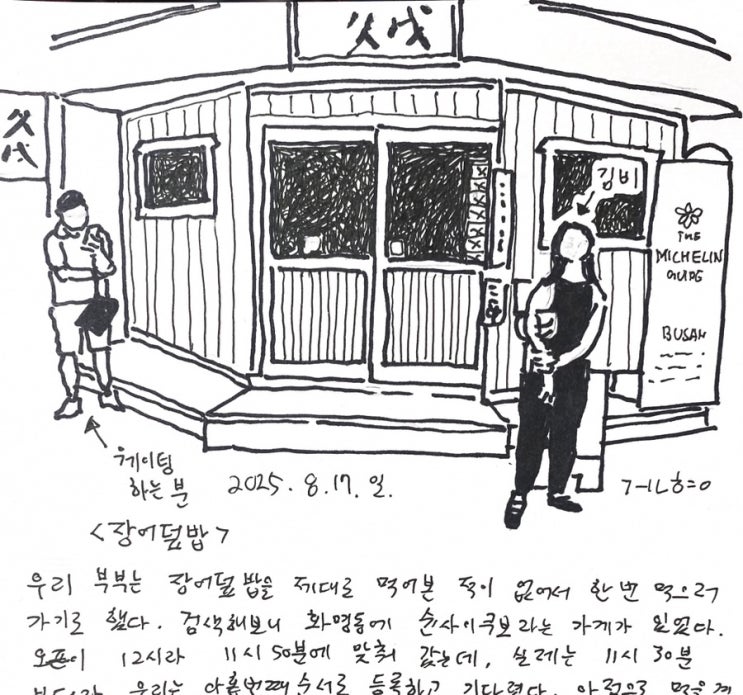 久伐
久伐
김비
THE
MICHELIN
GUIDE
BUSAN
웨이팅
하는 분
2025. 8. 17. 일.
<장어덮밥>
우리 부부는 장어덮밥을 제대로 먹어본 적이 없어서 한 번 먹으러
가기로 했다. 검색해보니 화명동에 순사이쿠보라는 가게가 있었다.
오픈이 12시라 11시 50분에 맞춰 갔는데, 실제는 11시 30분
우리는 아홉번째 순서로 등록하고 기다렸다.